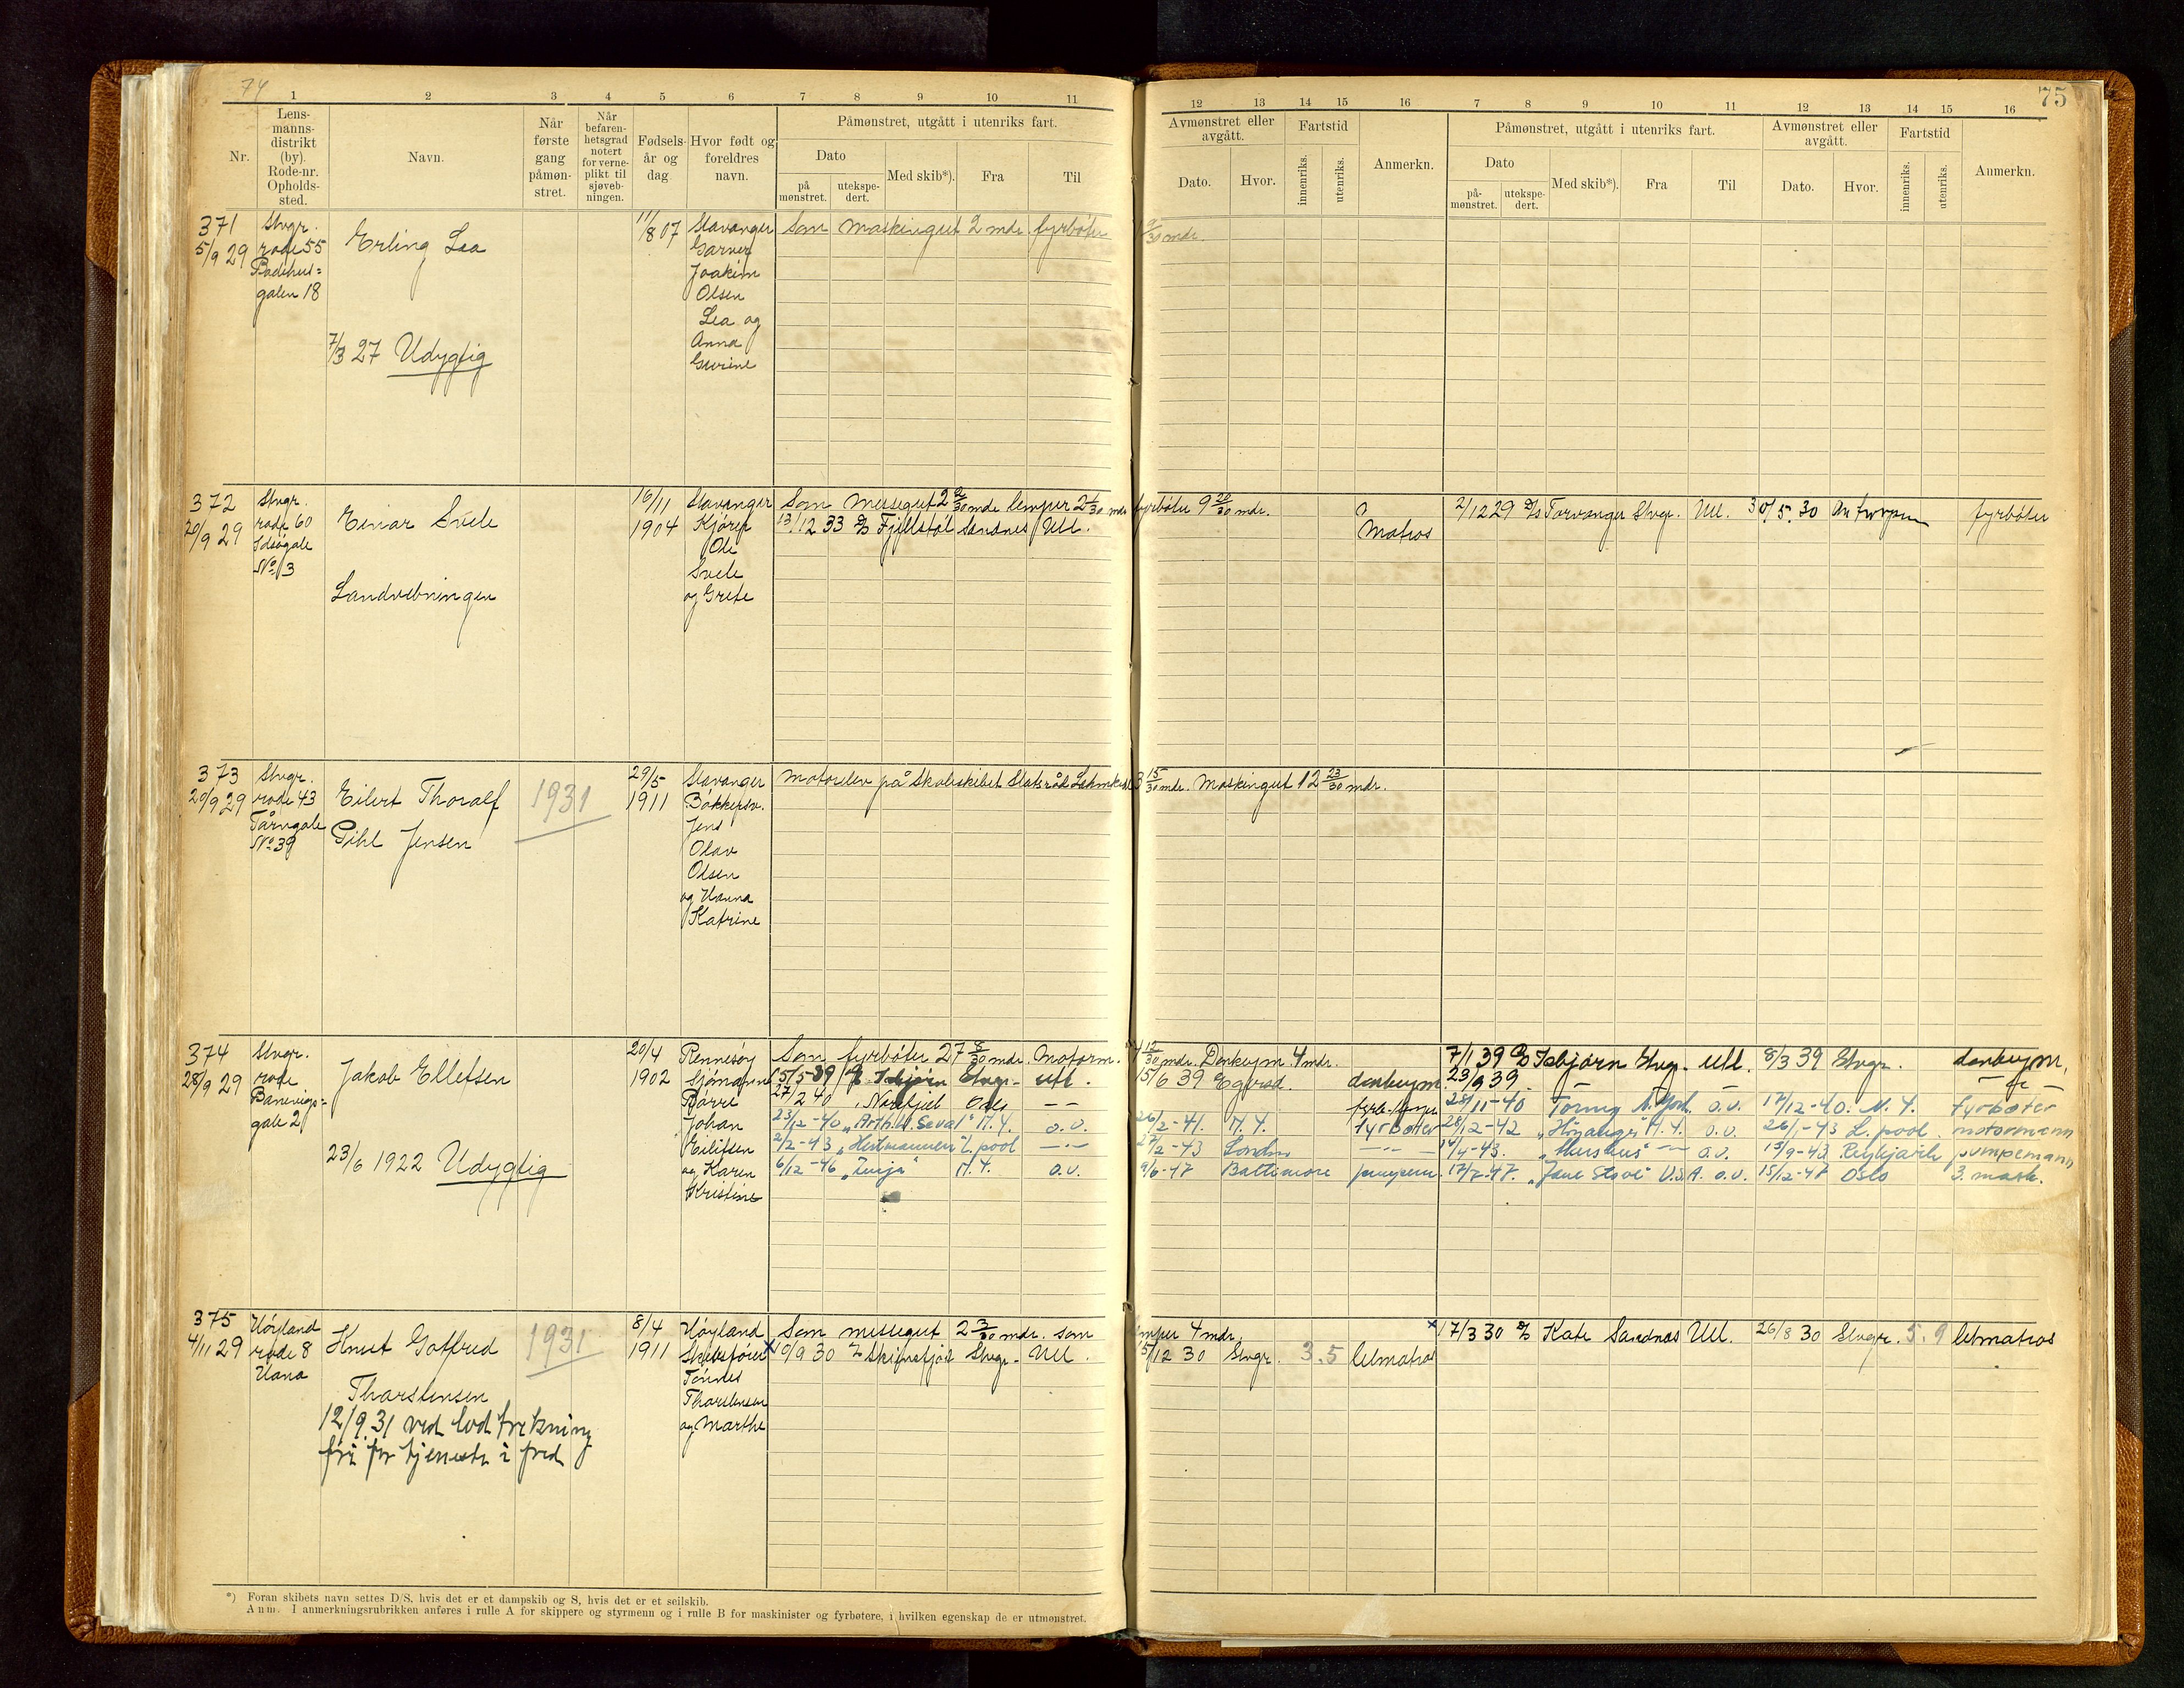 74
75
1 2 3 4 5 6 7 8 9 10 11
12 13 14 15 16 7 8 9 10 11 12 13 14 15 16
Nr.
Lens-
manns-
distrikt
(by).
Rode-nr.
Opholds-
sted.
Navn.
Når
første
gang
påmøn-
stret.
Når
befaren-
hetsgrad
notert
for verne-
plikt til
sjøveb-
ningen.
Fødsels-
år og
dag
Hvor født og
foreldres
navn.
Påmønstret, utgått i utenriks fart.
Dato
på
mønstret.
utekspe-
dert.
Med skib*).
Fra
Til
Avmønstret eller
avgått.
Dato.
Hvor.
Fartstid
innenriks.
utenriks.
Anmerkn.
Påmønstret, utgått i utenriks fart.
Dato
på-
mønstret.
utekspe-
dert.
Med skib*).
Fra
Til
Avmønstret eller
avgått.
Dato.
Hvor.
Fartstid
innenriks.
utenriks.
Anmerkn.
371
5/9 29
Stvgr.
rode 55
galen 18
Erling Lea
7/3 27 Udygtig
11/8 07
Stavanger
Garver
Joakim
Olsen
Lea og
Anna
Gurine
Som maskingut 2 mdr. fyrbøter
/30 mdr.
372
20/9 29
Stvgr.
rode 60
Idsøgale
No 3
Einar Svele
Landvebningen
16/11
1904
Stavanger
Ole
Svele
og Grete
Som messegut 2 /30 mdr lemper 2 /30 mdr fyrbøter 9 20/30 mdr.
13/12 33 D/S Fjellstøl Sandnes Utl.
Matros
2/12 29 D/S Torvanger Stvgr. Utl. 30/5. 30 Antwerpen fyrbøter
373
20/9 29
Stvgr.
rode 43
Tårngale
No 39
Eilert Thoralf
Pihl Jensen
1931
29/5
1911
Stavanger
Bakkersv.
Jens
Olav
Olsen
og Hanna
Katrine
Motorelev på Skoleskibet Statsråd Lehmkuhl 3 15/30 mdr. Maskingut 12 23/30 mdr.
374
28/9 29
Stvgr.
rode
Banevigs=
gale 2
Jakob Elletsen
23/6 1922 Udygtig
20/4
1902
Rennesøy
Sjømann
Børre
Johan
Eiletsen
og Karen
Kristine
Som fyrbøter 27 8/30 mdr. Motorm. 12/30 mdr. Donkeym 4 mdr.
15/5-39 D/S Isbjørn Stvgr. utl. 15/6 39 Egersd. donkeym
27/2 40 Norefjell Oslo — —
23/12-40 N.Y. o.v. 26/2-41. N.Y. fyrbøter
2/2-43 L.pool —·— 27/2-43 London —·—
6/12-46 N.Y. o.v. 9/6-47 Baltimore pumpem.
7/1 39 D/S Isbjørn Stvgr. Utl. 8/3 39 Stvgr. donkeym,
23/9 39
28/11-40 Torny N. York o.v. 17/12-40. N.Y. fyrbøter
28/12-42 „Høyanger" N.Y. o.v. 26/1-43 L.pool motormann
14/4-43. „Hushus" —·— o.v. 15/9-43 Reykjavik pumpemann
17/7-47. „Jane Stove" U.S.A. o.v. 15/12-47 Oslo 3. mask.
375
4/11 29
Høyland
rode 8
Hana
Knut Gotfred
Thorstensen
1931
12/9 31 ved lodtrekning
fri for tjeneste i fred
8/4
1911
Høyland
Skibsfører
Tønnes
Thorstensen
og Marthe
Som messegut 2 3/30 mdr. som lemper 4 mdr.
x 10/9 30 D/S Skiensfjord Stvgr. Utl. 5/12 30 Stvgr. 3.5 letmatros
x 17/3 30 D/S Kate Sandnes Utl. 26/8 30 Stvgr. 5.9 letmatros
*) Foran skibets navn settes D/S. hvis det er et dampskib og S, hvis det er et seilskib.
Anm. I anmerkningsrubrikken anføres i rulle A for skippere og styrmenn og i rulle B for maskinister og fyrbøtere, i hvilken egenskap de er utmønstret.